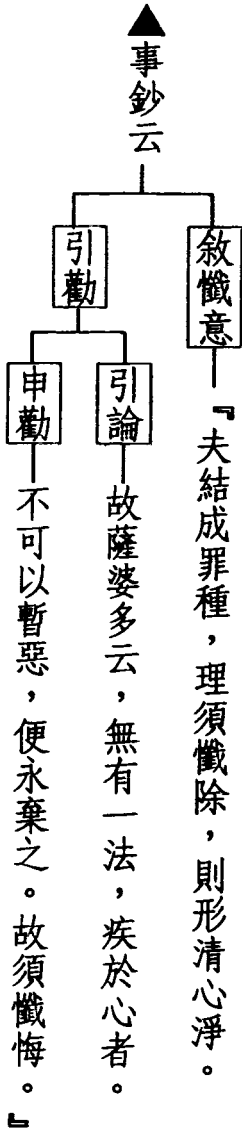 ▲事鈔云
敘懺意
『夫結成罪種，理須懺除，則形清心淨。
引勸
引論
故薩婆多云，無有一法，疾於心者。
申勸
不可以暫惡，便永棄之。故須懺悔。』